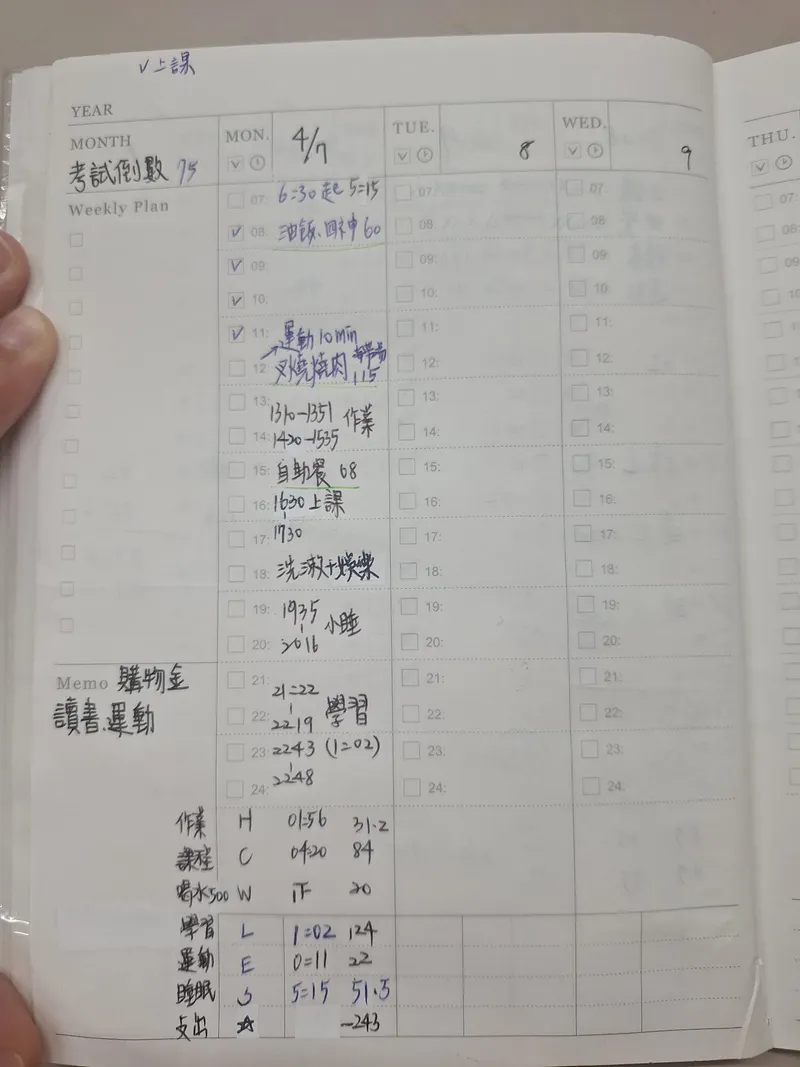 ✓上課
YEAR
MONTH
考試倒數 75
MON.
4/7
TUE.
8
WED.
9
THU.
Weekly Plan
07: 6:30起 5:15
08: 油飯、四神 60
09:
10:
11: 運動10min
12: 叉燒燒肉 115
13: 1310-1351 作業
14: 1420-1535
15: 自助餐 68
16: 1630上課
17: 1730
18: 洗漱+娛樂
19: 1935 小睡
20: 2016
21: 21:22
22: 2219 學習
23: 2243 (1:02)
24: 2248
07:
08:
09:
10:
11:
12:
13:
14:
15:
16:
17:
18:
19:
20:
21:
22:
23:
24:
07:
08:
09:
10:
11:
12:
13:
14:
15:
16:
17:
18:
19:
20:
21:
22:
23:
24:
07:
08:
09:
10:
Memo 購物金
讀書、運動
作業 H 01:56 31.2
課程 C 04:20 84
喝水500 W 正 20
學習 L 1:02 124
運動 E 0:11 22
睡眠 S 5:15 51.5
支出 ☆ -243